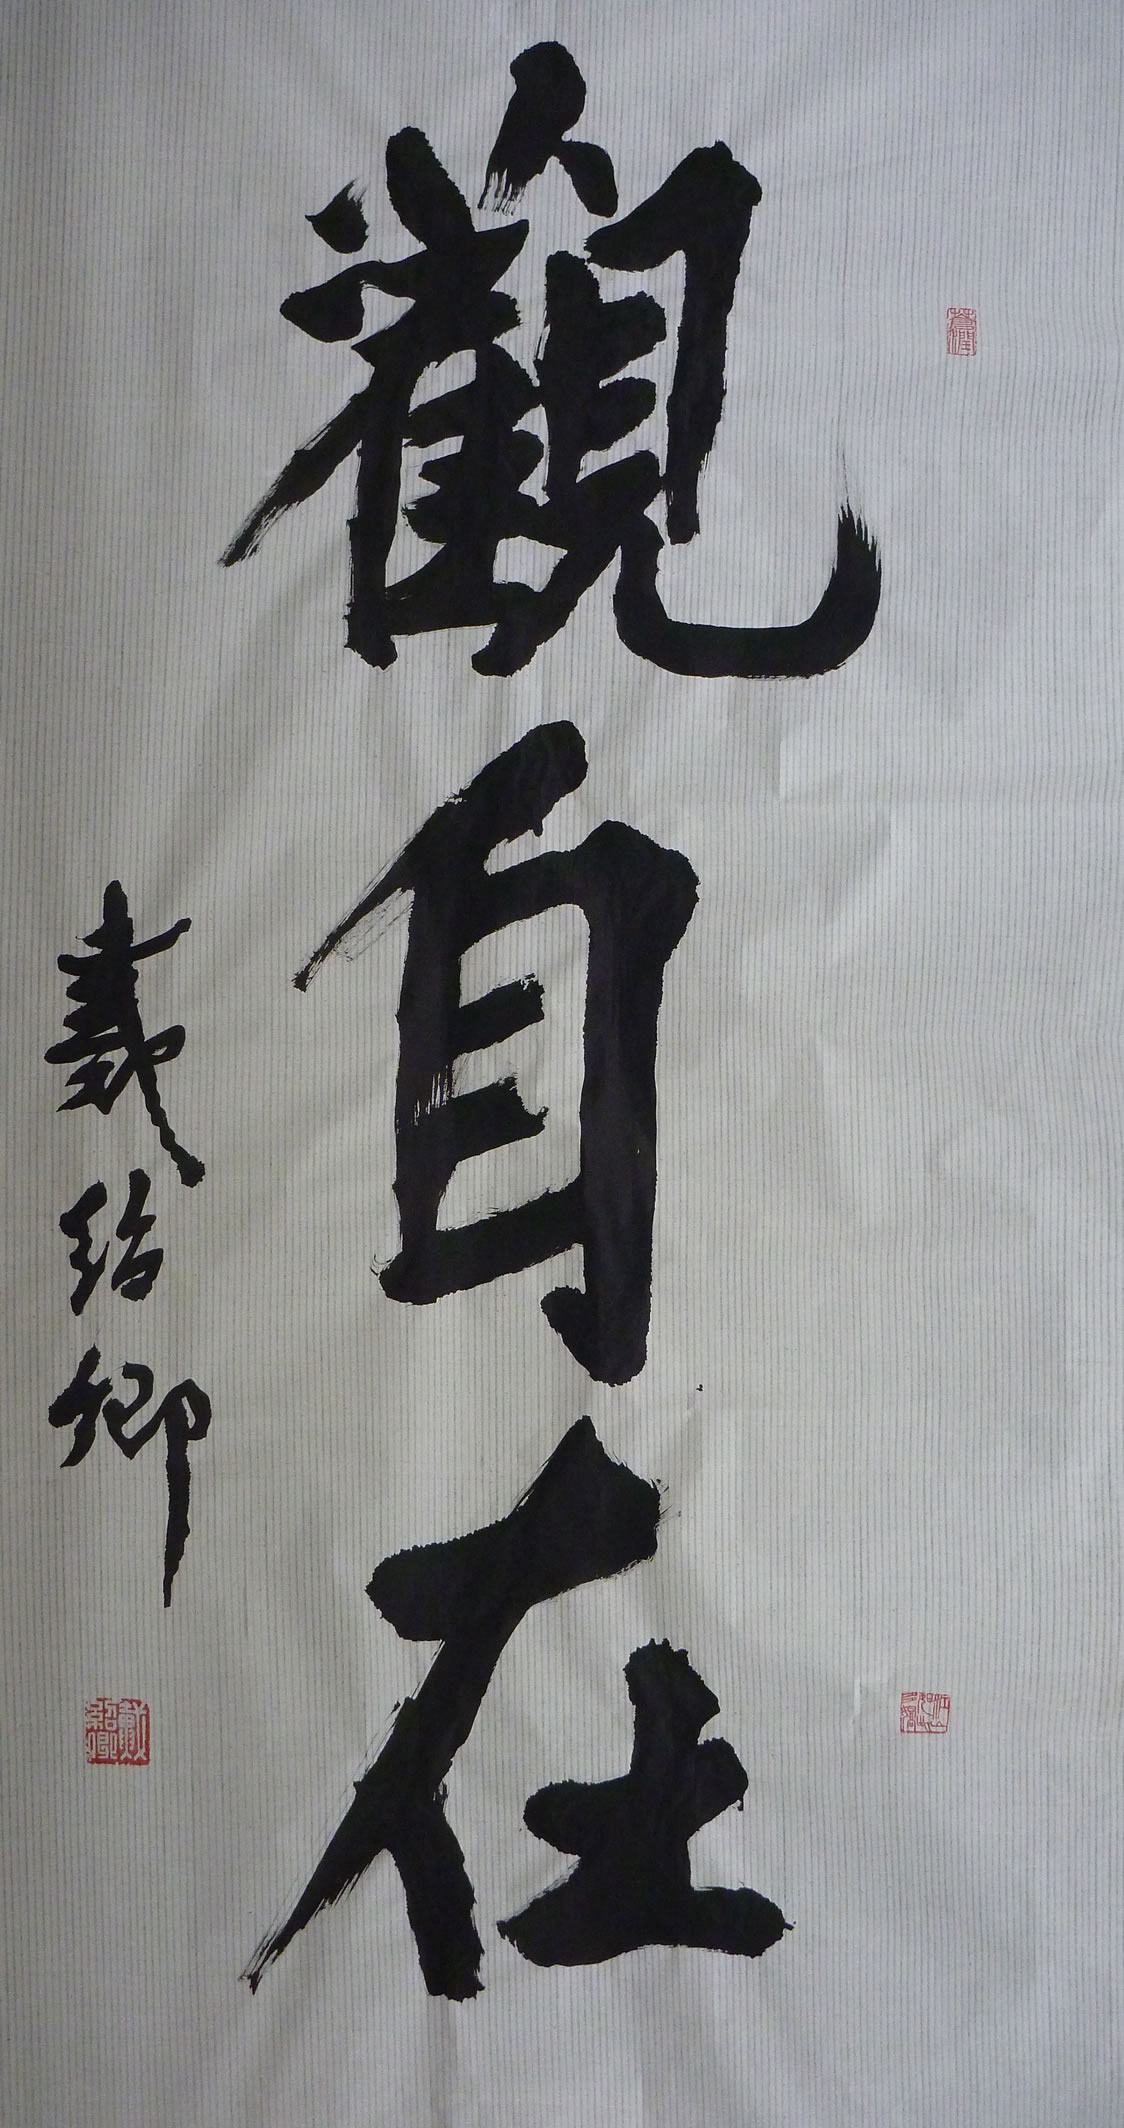 觀自在
戴紹卿